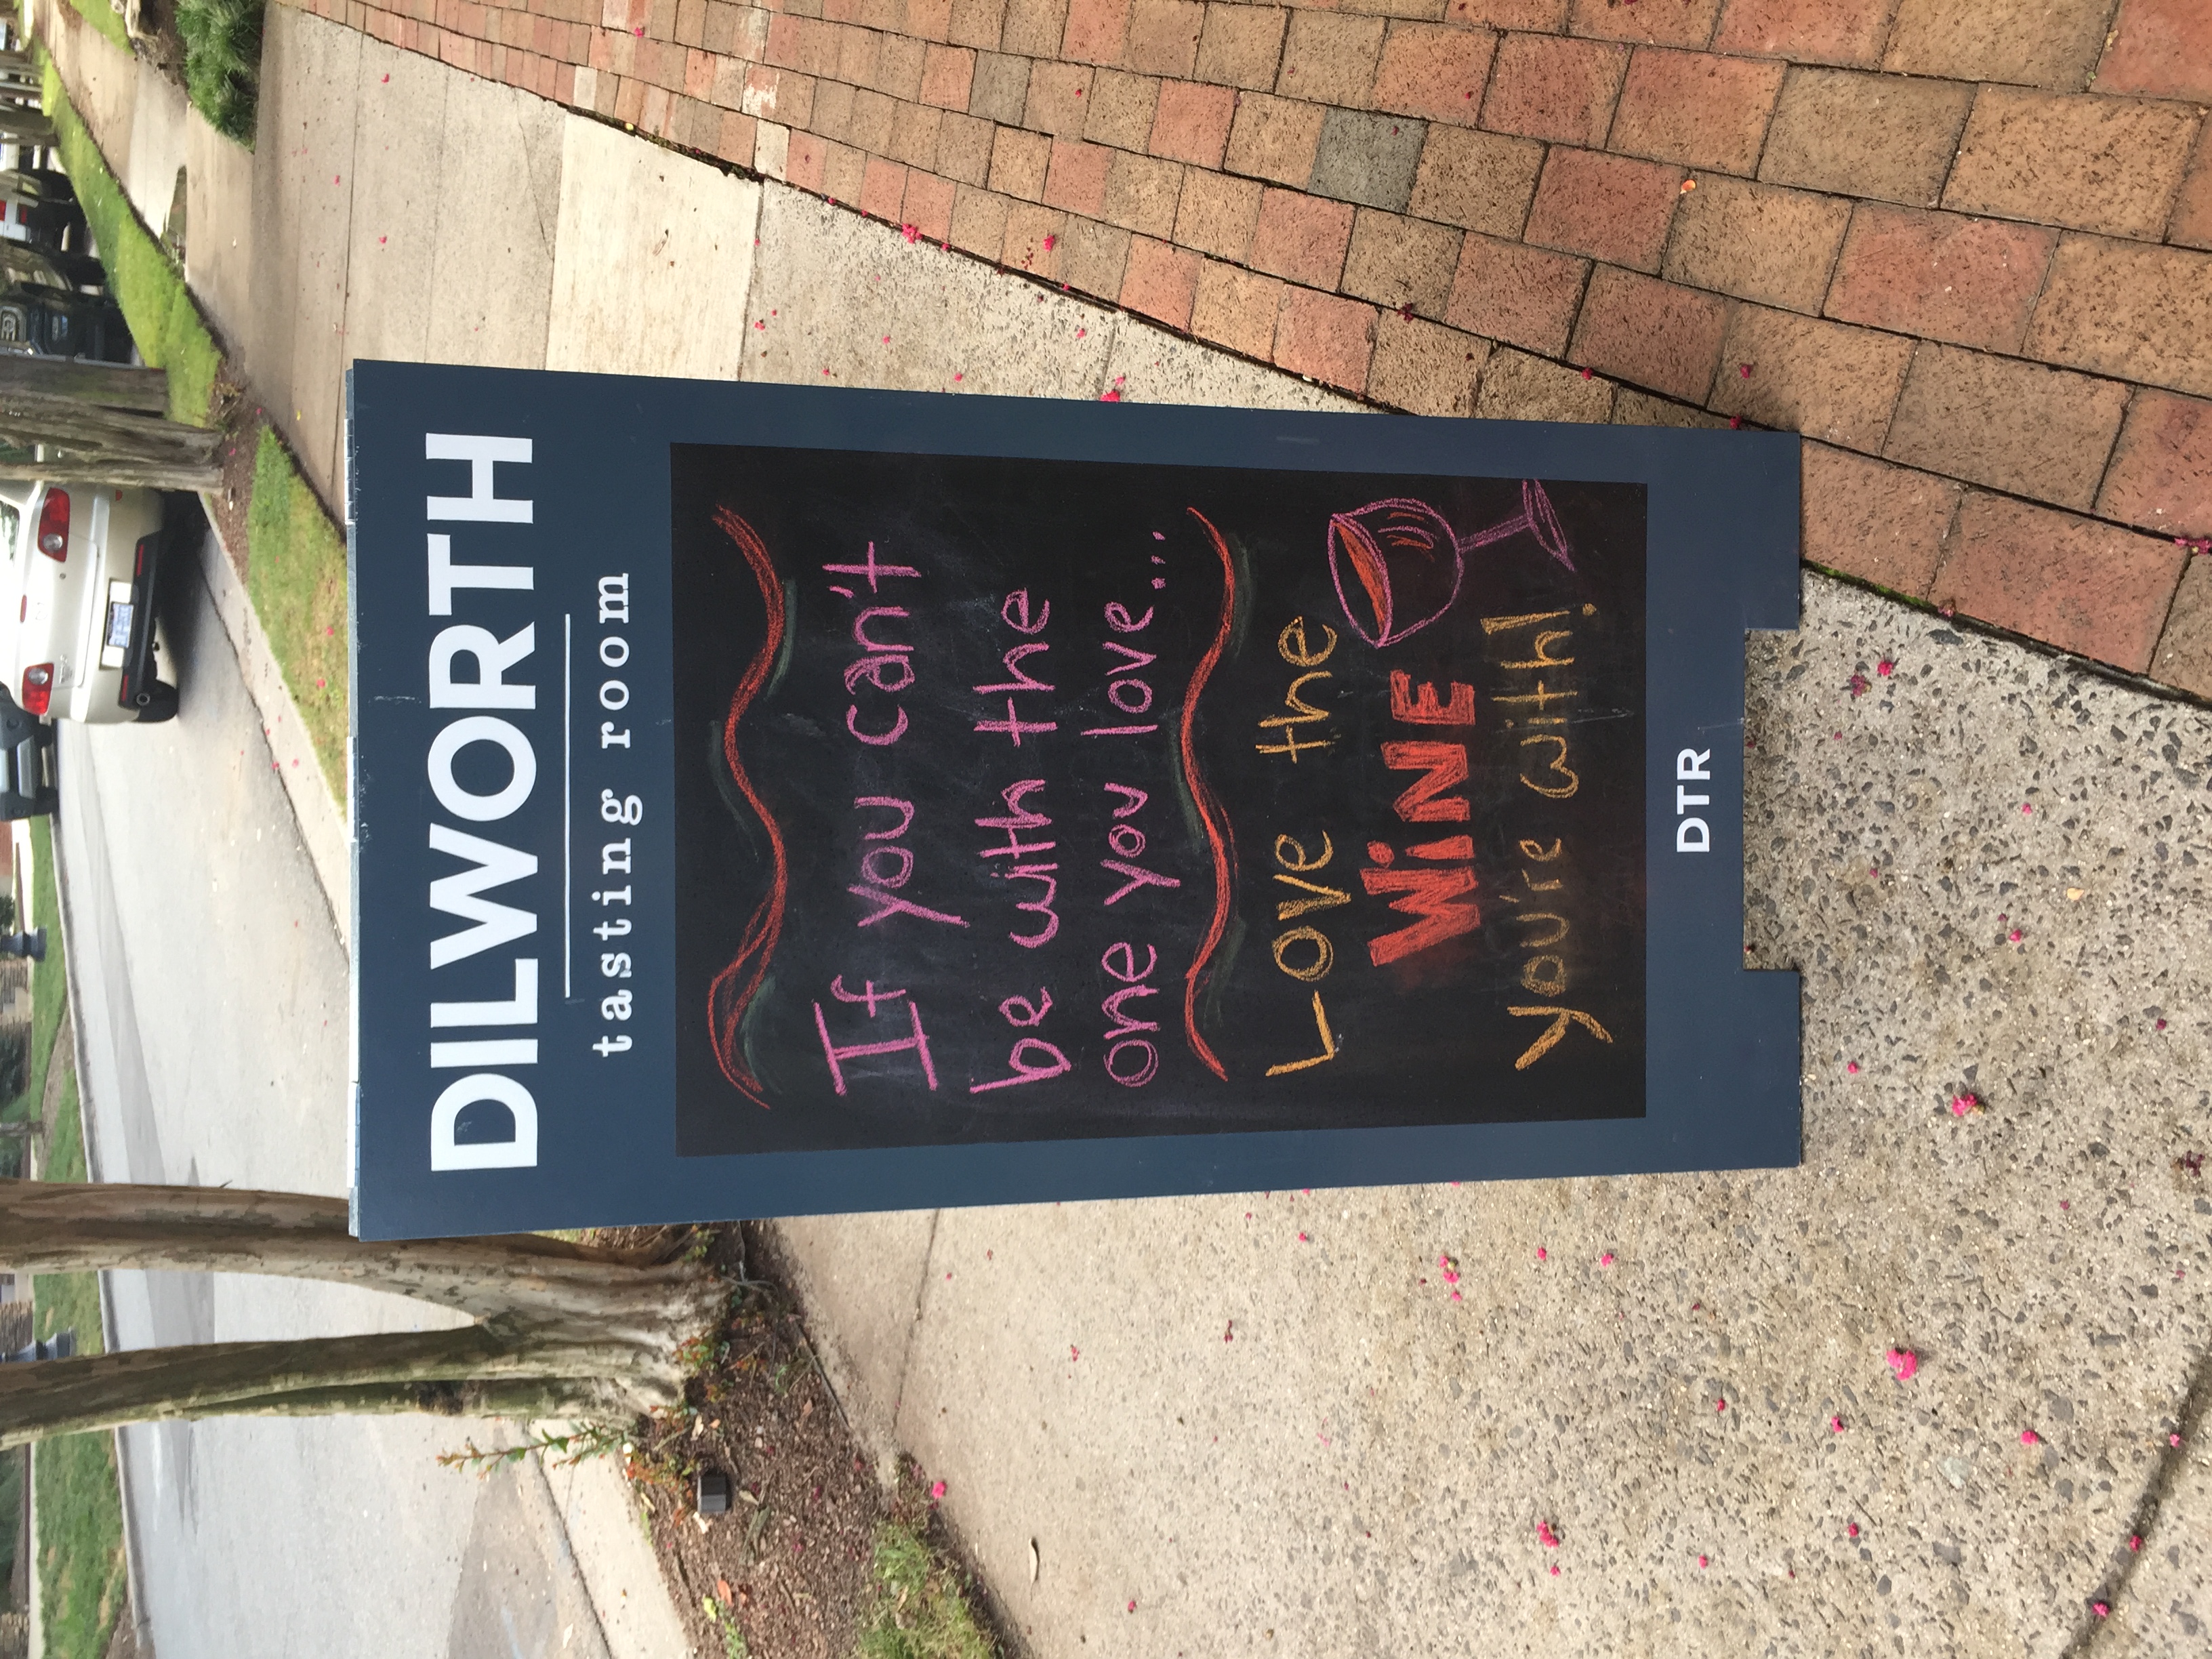 DILWORTH
tasting room
If you can't
be with the
one you love...
Love the
WiNE
you're with!
DTR